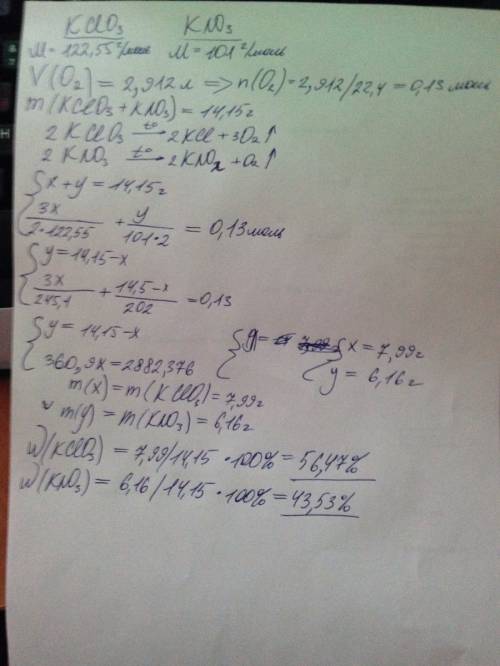 KClO₃ KNO₃
M = 122,55 г/моль M = 101 г/моль
V(O₂) = 2,912 л ⟹ n(O₂) = 2,912/22,4 = 0,13 моль
m(KClO₃ + KNO₃) = 14,15 г
2 KClO₃ —t°→ 2 KCl + 3O₂ ↑
2 KNO₃ —t°→ 2 KNO₂ + O₂ ↑
{ x + y = 14,15 г
3x / 2·122,55 + y / 101·2 = 0,13 моль
{ y = 14,15 - x
3x / 245,1 + 14,5 - x / 202 = 0,13
{ y = 14,15 - x { y = { x = 7,99 г
360,9x = 2882,376 y = 6,16 г
m(x) = m(KClO₃) = 7,99 г
m(y) = m(KNO₃) = 6,16 г
W(KClO₃) = 7,99/14,15 · 100% = 56,47%
W(KNO₃) = 6,16/14,15 · 100% = 43,53%